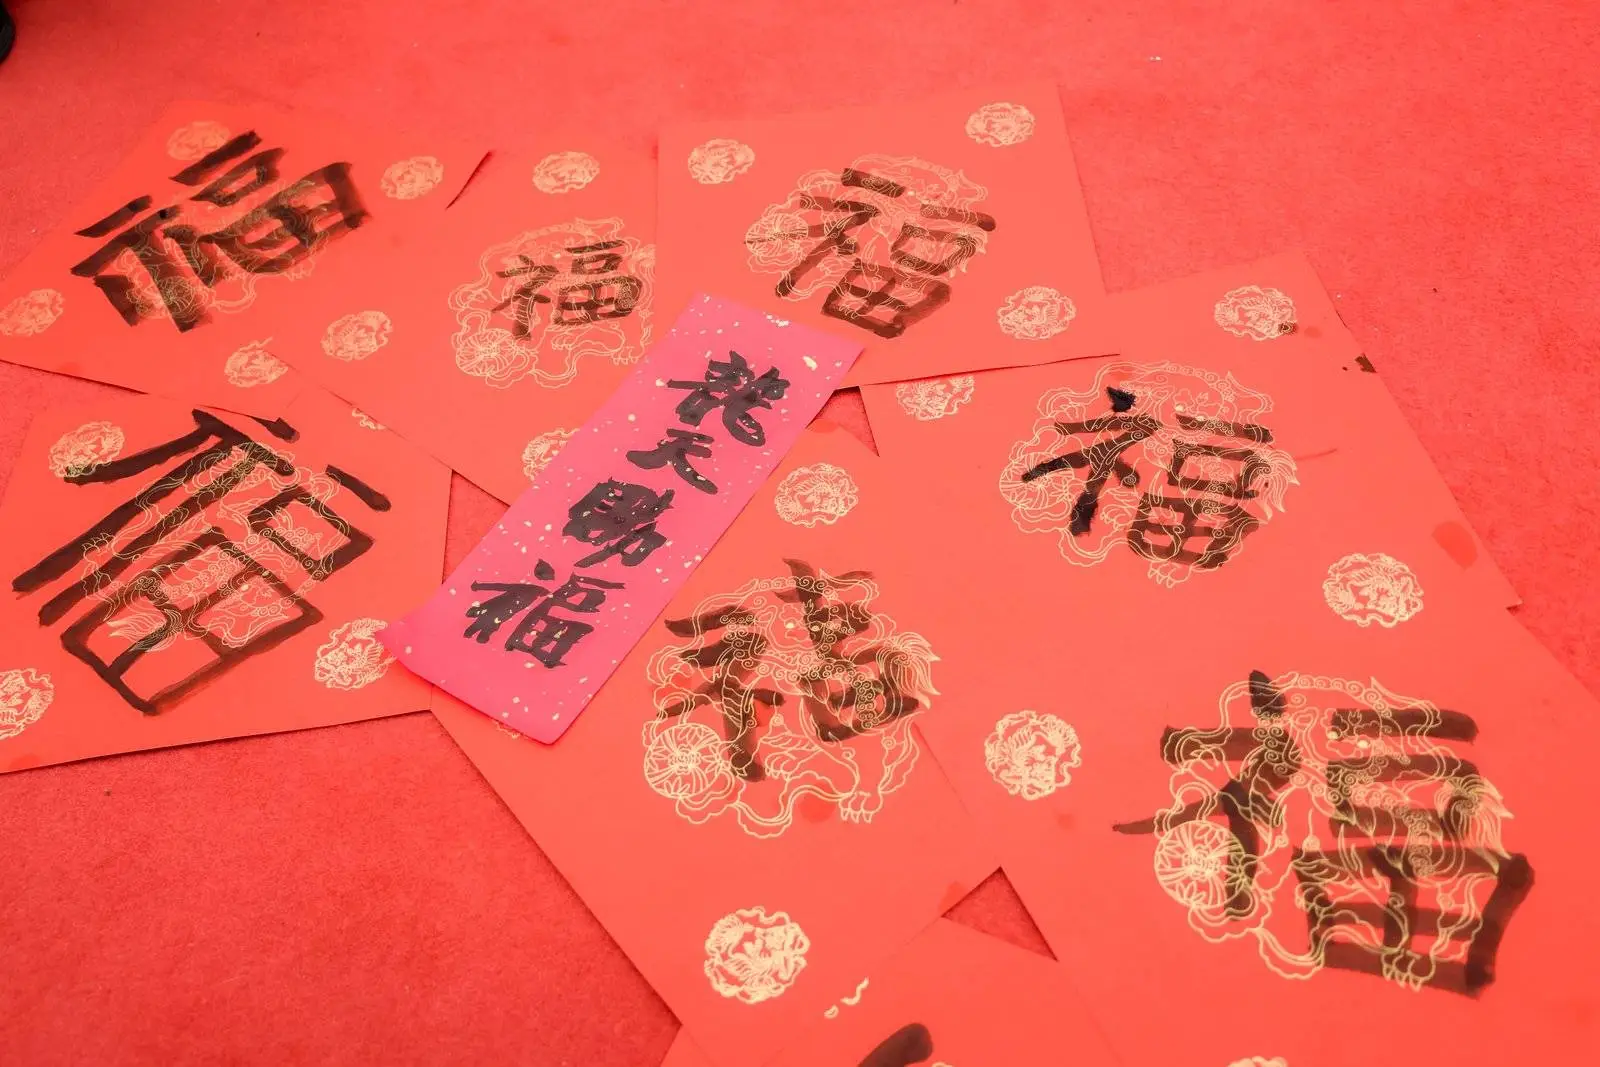 福
福
福
龍天賜福
福
福
福